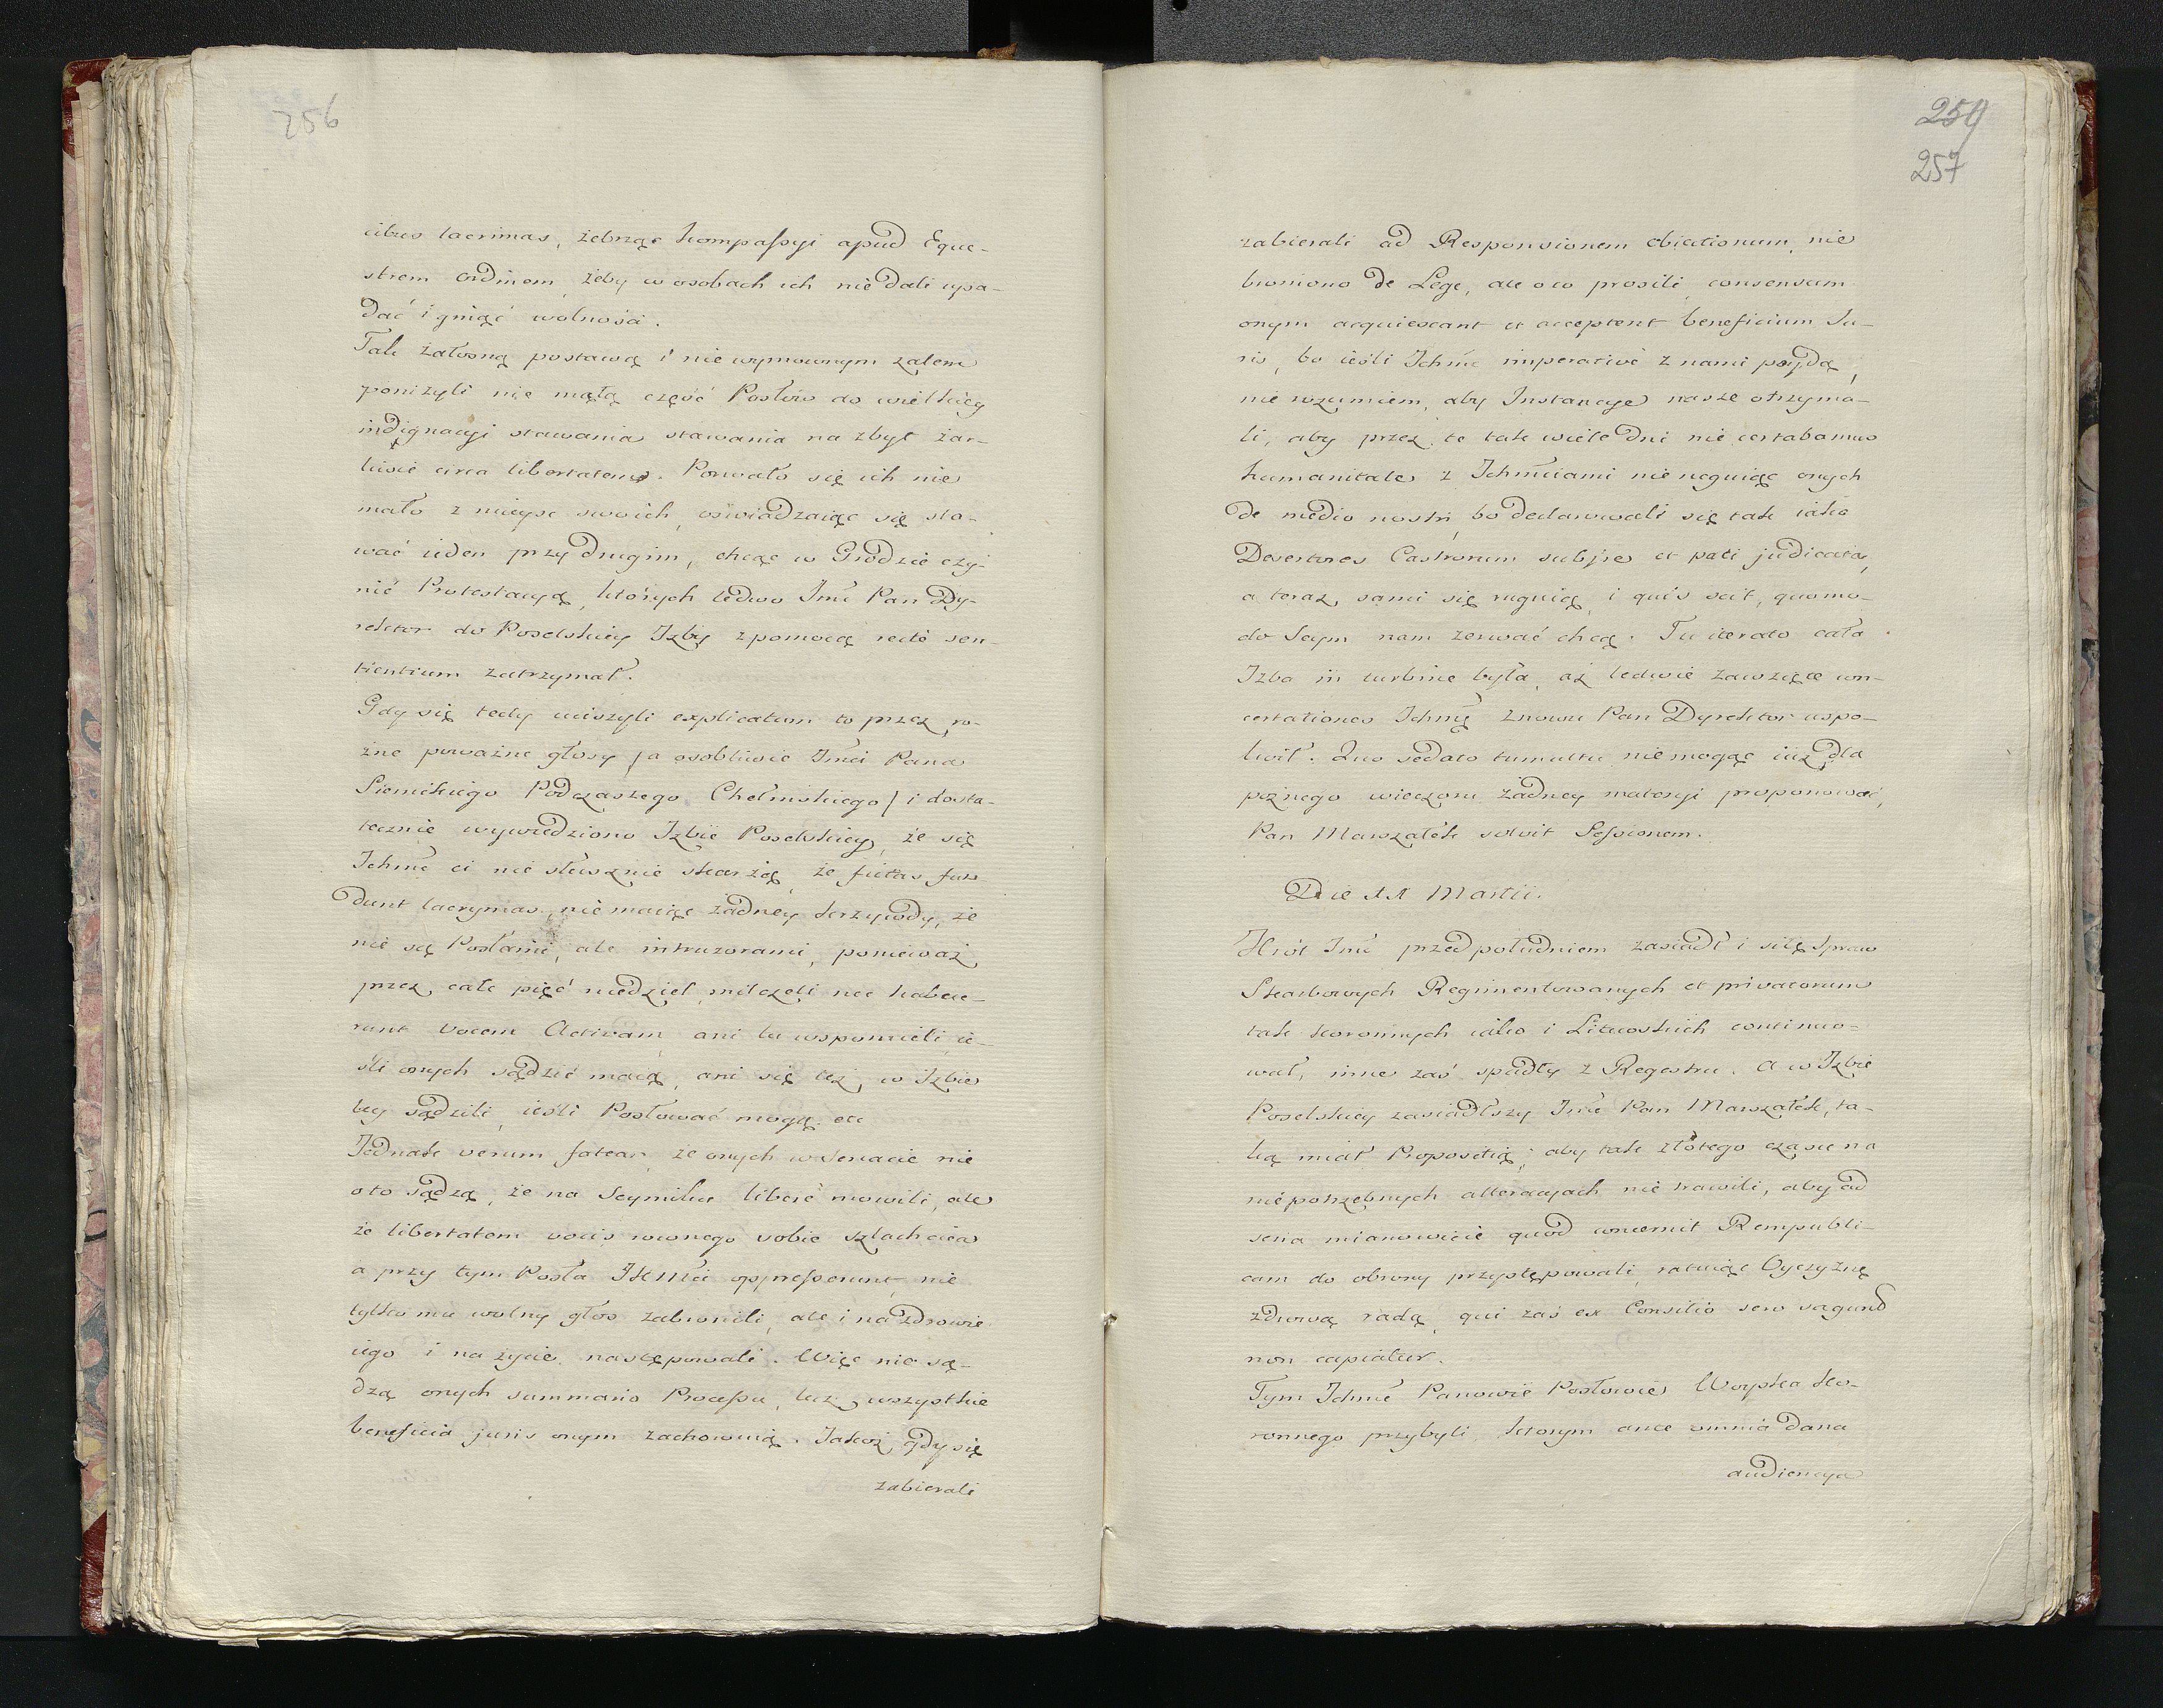 256
cibus lacrimas, żebrząc kompaſsyi apud Eque-
strem ordinem, żeby w osobach ich nie dali upa-
dać i ginąć wolności.
Tak żałosną postawą i nie wymownym żalem
poniżyli nie małą część Posłów do wielkiey
indignacyi stawania stawania na zbyt żar-
liwie circa libertatem. Porwało się ich nie
mało z mieysc swoich, oświadzaiąc się sta-
wać ieden przy drugim, chcąc w Grodzie czy-
nić Protestacyą, których ledwo Jmć Pan Dy-
rektor do Poselskiey Izby z pomocą rectè sen-
tientium zatrzymał.
Gdy się tedy uciszyli explicatum to przez ro-
żne poważne głosy /a osobliwie Jmći Pana
Siemińskiego Podczaszego Chełmskiego/ i dosta-
tecznie wywiedziono Izbie Poselskiey, że się
Ichmć ci nie słusznie skarżą, że fictas fun-
dunt lacrymas, nie maiąc żadney krzywdy, że
nie są Posłami, ale intruzorami, ponieważ
przez całe pięć niedziel milczeli nec habue-
runt vocem Activam, ani tu wspomnieli ie-
śli onych sądzić maią, ani się też w Izbie
tey sądzili, ieśli Posłować mogą etc
Jednak verum fatear, że onych w Senacie nie
o to sądzą, że na Seymiku liberè mowili, ale
że libertatem vocis rownego sobie szlachcica
a przy tym Posła JKMći oppreſserunt, nie
tylko mu wolny głos zabronili, ale i na zdrowie
iego i na życie następowali. Więc nie są-
dzą onych summario Proceſsu, lecz wszystkie
beneficia juris onym zachowuią. Jakoż gdy się
zabierali
259
257
zabierali ad Responsionem obiectionum, nie
broniono de Lege, ale o co prosili, consensum
onym acquiescant et acceptent beneficium Ju-
ris, bo ieśli Ichmć imperativè z nami poydą,
nie rozumiem, aby Instancye nasze otrzyma-
li, aby przez te tak wiele dni nie certabamus
humanitate z Ichmciami nie ruguiąc onych
de medio nostri, bo declarowali się tak iako
Desertores Castrorum subire et pati judicata,
a teraz sami się ruguią, i quis scit, quomo-
do Seym nam zerwać chcą. Tu iterato cała
Izba in turbine była, aż ledwie zawzięte con-
certationes Ichmć znowu Pan Dyrektor uspo-
koił. Quo sedato tumultu nie mogąc iuż dla
poznego wieczoru żadney materyi proponować,
Pan Marszałek solvit Seſsionem.
Die XX Martii.
Krol Jmć przed południem zasiadł i siłę Spraw
Skarbowych Regimentowanych et privatorum
tak koronnych iako i Litewskich continuo-
wał, inne zaś spadły z Regestru. A w Izbie
Poselskiey zasiadłszy Jmć Pan Marszałek, ta-
ką miał Propositią; aby tak złotego czasu na
niepotrzebnych altercacyach nie trawili, aby ad
seria mianowicie quod concernit Rempubli-
cam do obrony przystępowali, ratuiąc Oyczyznę
zdrową radą, qui zaś ex Consilio sero sagund
non capiatur.
Tym Ichmć Panowie Posłowie Woyska ko-
ronnego przybyli, ktorym ante omnia dana
audiencya